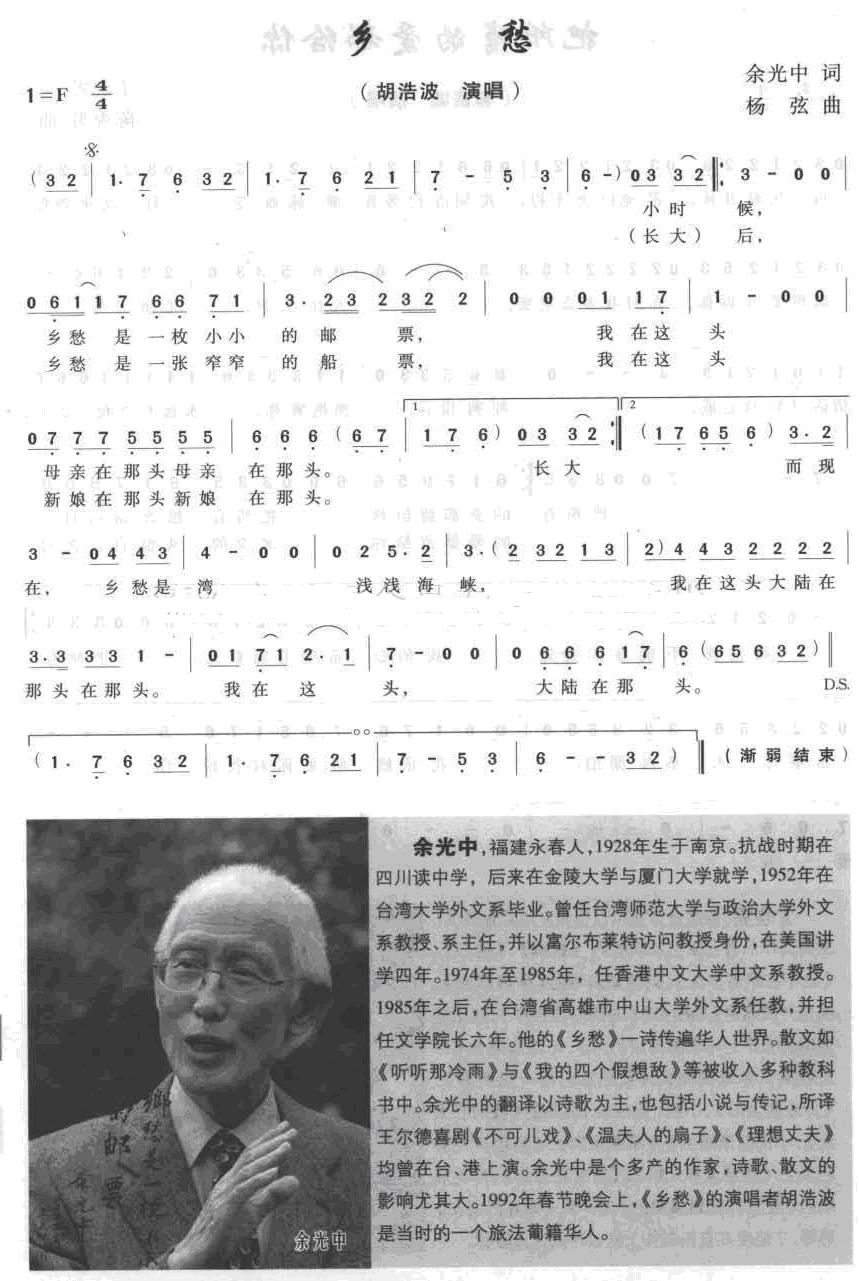 乡 愁
1=F 4/4
(胡浩波 演唱)
余光中 词
杨 弦 曲
(3 2 | 1· 7 6 3 2 | 1· 7 6 2 1 | 7 - 5 3 | 6 -) 0 3 3 2 ‖: 3 - 0 0 |
小 时 候,
(长 大) 后,
0 6 1 1 1 7 6 6 7 1 | 3 · 2 3 2 3 2 2 | 0 0 0 1 1 7 | 1 - 0 0 |
乡 愁 是 一 枚 小 小 的 邮 票, 我 在 这 头
乡 愁 是 一 张 窄 窄 的 船 票, 我 在 这 头
1 2
0 7 7 7 5 5 5 5 | 6 6 6 (6 7 | 1 7 6) 0 3 3 2 :‖ (1 7 6 5 6) 3· 2 |
母 亲 在 那 头 母 亲 在 那 头。 长 大 而 现
新 娘 在 那 头 新 娘 在 那 头。
3 - 0 4 4 3 | 4 - 0 0 | 0 2 5· 2 | 3·(2 3 2 1 3 | 2) 4 4 3 2 2 2 2 |
在, 乡 愁 是 湾 浅 浅 海 峡, 我 在 这 头 大 陆 在
3· 3 3 3 1 - | 0 1 7 1 2· 1 | 7 - 0 0 | 0 6 6 6 1 7 | 6 (6 5 6 3 2) ‖
那 头 在 那 头。 我 在 这 头, 大 陆 在 那 头。 D.S.
(1· 7 6 3 2 | 1· 7 6 2 1 | 7 - 5 3 | 6 - - 3 2) ‖ (渐 弱 结 束)
余光中,福建永春人,1928年生于南京。抗战时期在
四川读中学，后来在金陵大学与厦门大学就学,1952年在
台湾大学外文系毕业。曾任台湾师范大学与政治大学外文
系教授、系主任,并以富尔布莱特访问教授身份,在美国讲
学四年。1974年至1985年，任香港中文大学中文系教授。
1985年之后,在台湾省高雄市中山大学外文系任教,并担
任文学院长六年。他的《乡愁》一诗传遍华人世界。散文如
《听听那冷雨》与《我的四个假想敌》等被收入多种教科
书中。余光中的翻译以诗歌为主,也包括小说与传记,所译
王尔德喜剧《不可儿戏》、《温夫人的扇子》、《理想丈夫》
均曾在台、港上演。余光中是个多产的作家,诗歌、散文的
影响尤其大。1992年春节晚会上,《乡愁》的演唱者胡浩波
是当时的一个旅法葡籍华人。
鄉愁是一
邮票
余光中
余光中